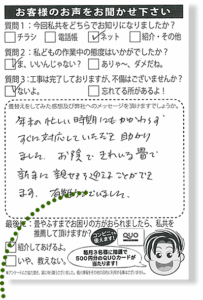 お客様の声をお聞かせ下さい
質問1：今回私共をどちらでお知りになりましたか？
チラシ 電話帳 ネット 紹介・その他
質問2：私どもの作業中の態度はいかがでしたか？
ま、いいんじゃない？ ありゃ〜、ダメだね。
質問3：工事は完了しておりますが、不備はございませんか？
ないよ。 忘れてる所があるよ！
年末の忙しい時期にもかかわらず
すぐに対応していただき助かり
ました。お陰できれいな畳で
新年に親せきを迎えることができ
ます。
最後に：畳やふすまでお困りの方がおられましたら、私共を
推薦して頂けますか？
紹介してあげるよ。
いや、教えない。
毎月3名様に抽選で
500円分のQUOカードが
当たります！
QUO